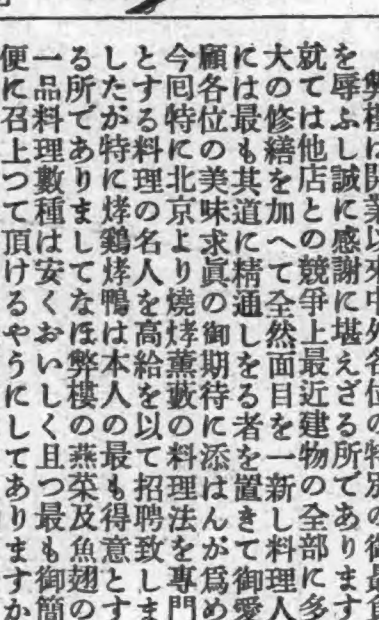 弊樓は開業以來中外各位の特別の御最負
を辱ふし誠に感謝に堪えざる所であります
就ては他店との競爭上最近建物の全部に多
大の修繕を加へて全然面目を一新し料理人
には最も其道に精通しをる者を置きて御愛
顧各位の美味求眞の御期待に添はんが爲め
今囘特に北京より燒烤薰藪の料理法を專門
とする料理の名人を高給を以て招聘致しま
したが特に烤鷄烤鴨は本人の最も得意とす
る所でありましてなほ弊樓の燕菜及魚翅の
一品料理數種は安くおいしく且つ最も御簡
便に召上つて頂けるやうにしてありますか